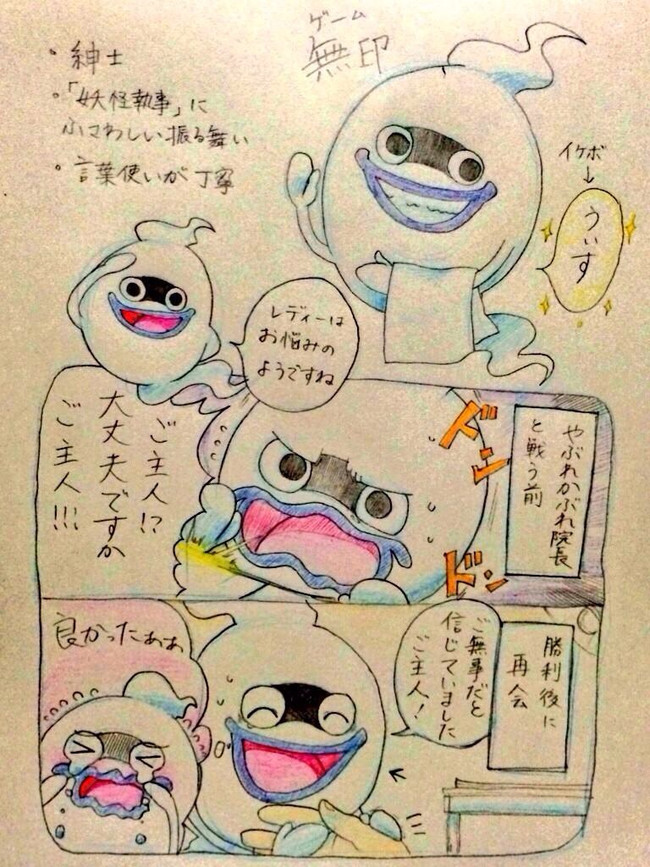 ゲーム
無印
・紳士
・「妖怪執事」に
ふさわしい振る舞い
・言葉使いが丁寧
イケボ
↓
うぃす
レディーは
お悩みの
ようですね
やぶれかぶれ院長
と戦う前
ドン
ドン
ご主人!?
大丈夫ですか
ご主人!!!
勝利後に
再会
ご無事だと
信じていました
ご主人!
良かったぁぁ